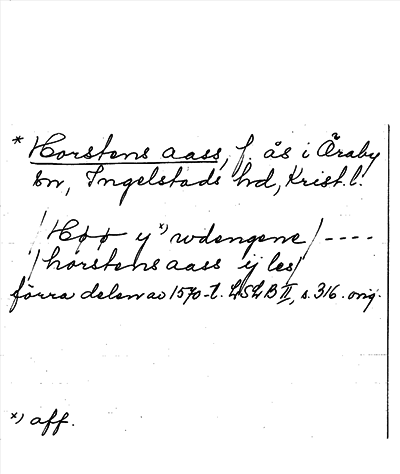 * Horstens aass, f. ås i Äraby
sn, Ingelstads hd, Krist. l.
/Høø y *) wdengene/ ----
/horstens aass ij les/
förra delen av 1570-t. LSLB II, s. 316. orig.
*) aff.